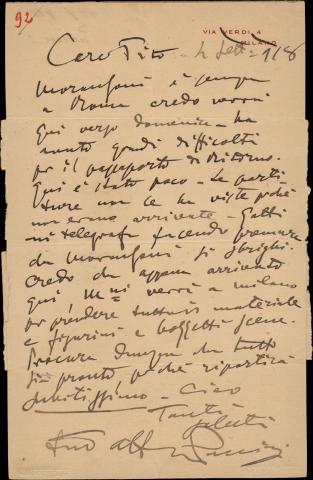 92
VIA VERDI 4
MILANO
Caro Tito - 4 Sett. 1918
Moranzoni è sempre
a Roma credo verrà
qui verso domenica - ha
avuto grandi difficoltà
per il passaporto di ritorno.
Qui è stato poco - Le parti-
ture non le ha viste perché
non erano arrivate - Gatti
mi telegrafa facendo premura
che Moranzoni si sbrighi.
Credo che appena arrivato
qui, verrà a Milano
per prendere tutto il materiale
e figurini e bozzetti scene.
Procura dunque che tutto
sia pronto perché ripartirà
subitissimo - Ciao
Tanti
saluti
tuo aff
Puccini